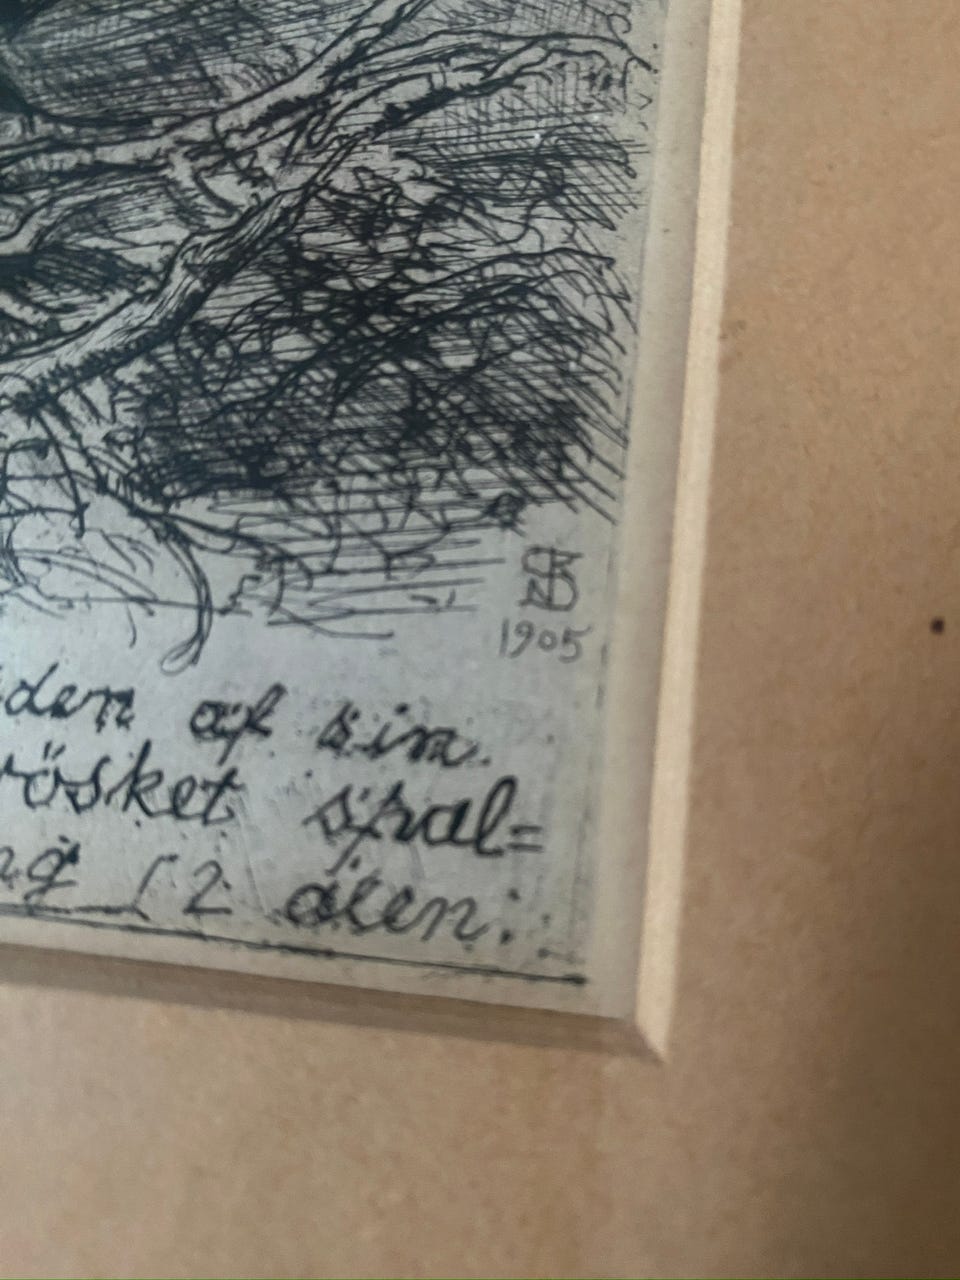 1905
den af sin
rösket spal=
ng [2 alen: